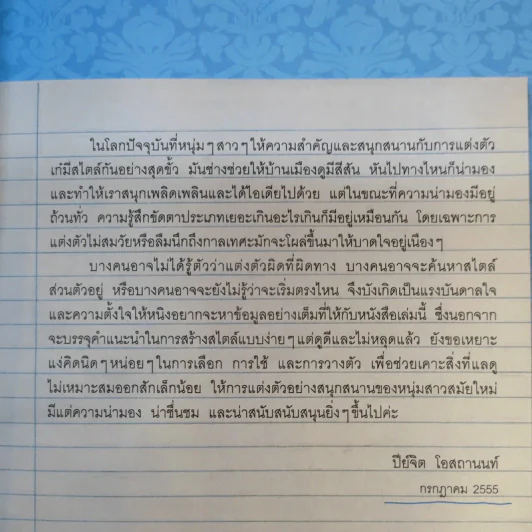 ในโลกปัจจุบันที่หนุ่มๆสาวๆให้ความสำคัญและสนุกสนานกับการแต่งตัว
เก๋มีสไตล์กันอย่างสุดขั้ว มันช่างช่วยให้บ้านเมืองดูมีสีสัน หันไปทางไหนก็น่ามอง
และทำให้เราสนุกเพลิดเพลินและได้ไอเดียไปด้วย แต่ในขณะที่ความน่ามองมีอยู่
ถ้วนทั่ว ความรู้สึกขัดตาประเภทเยอะเกินอะไรเกินก็มีอยู่เหมือนกัน โดยเฉพาะการ
แต่งตัวไม่สมวัยหรือลืมนึกถึงกาลเทศะมักจะโผล่ขึ้นมาให้บาดใจอยู่เนืองๆ
บางคนอาจไม่ได้รู้ตัวว่าแต่งตัวผิดที่ผิดทาง บางคนอาจจะค้นหาสไตล์
ส่วนตัวอยู่ หรือบางคนอาจจะยังไม่รู้ว่าจะเริ่มตรงไหน จึงบังเกิดเป็นแรงบันดาลใจ
และความตั้งใจให้หนิงอยากจะหาข้อมูลอย่างเต็มที่ให้กับหนังสือเล่มนี้ ซึ่งนอกจาก
จะบรรจุคำแนะนำในการสร้างสไตล์แบบง่ายๆแต่ดูดีและไม่หลุดแล้ว ยังขอเหยาะ
แง่คิดนิดๆหน่อยๆในการเลือก การใช้ และการวางตัว เพื่อช่วยเคาะสิ่งที่แลดู
ไม่เหมาะสมออกสักเล็กน้อย ให้การแต่งตัวอย่างสนุกสนานของหนุ่มสาวสมัยใหม่
มีแต่ความน่ามอง น่าชื่นชม และน่าสนับสนับสนุนยิ่งๆขึ้นไปค่ะ
ปิย์จิต โอสถานนท์
กรกฎาคม 2555